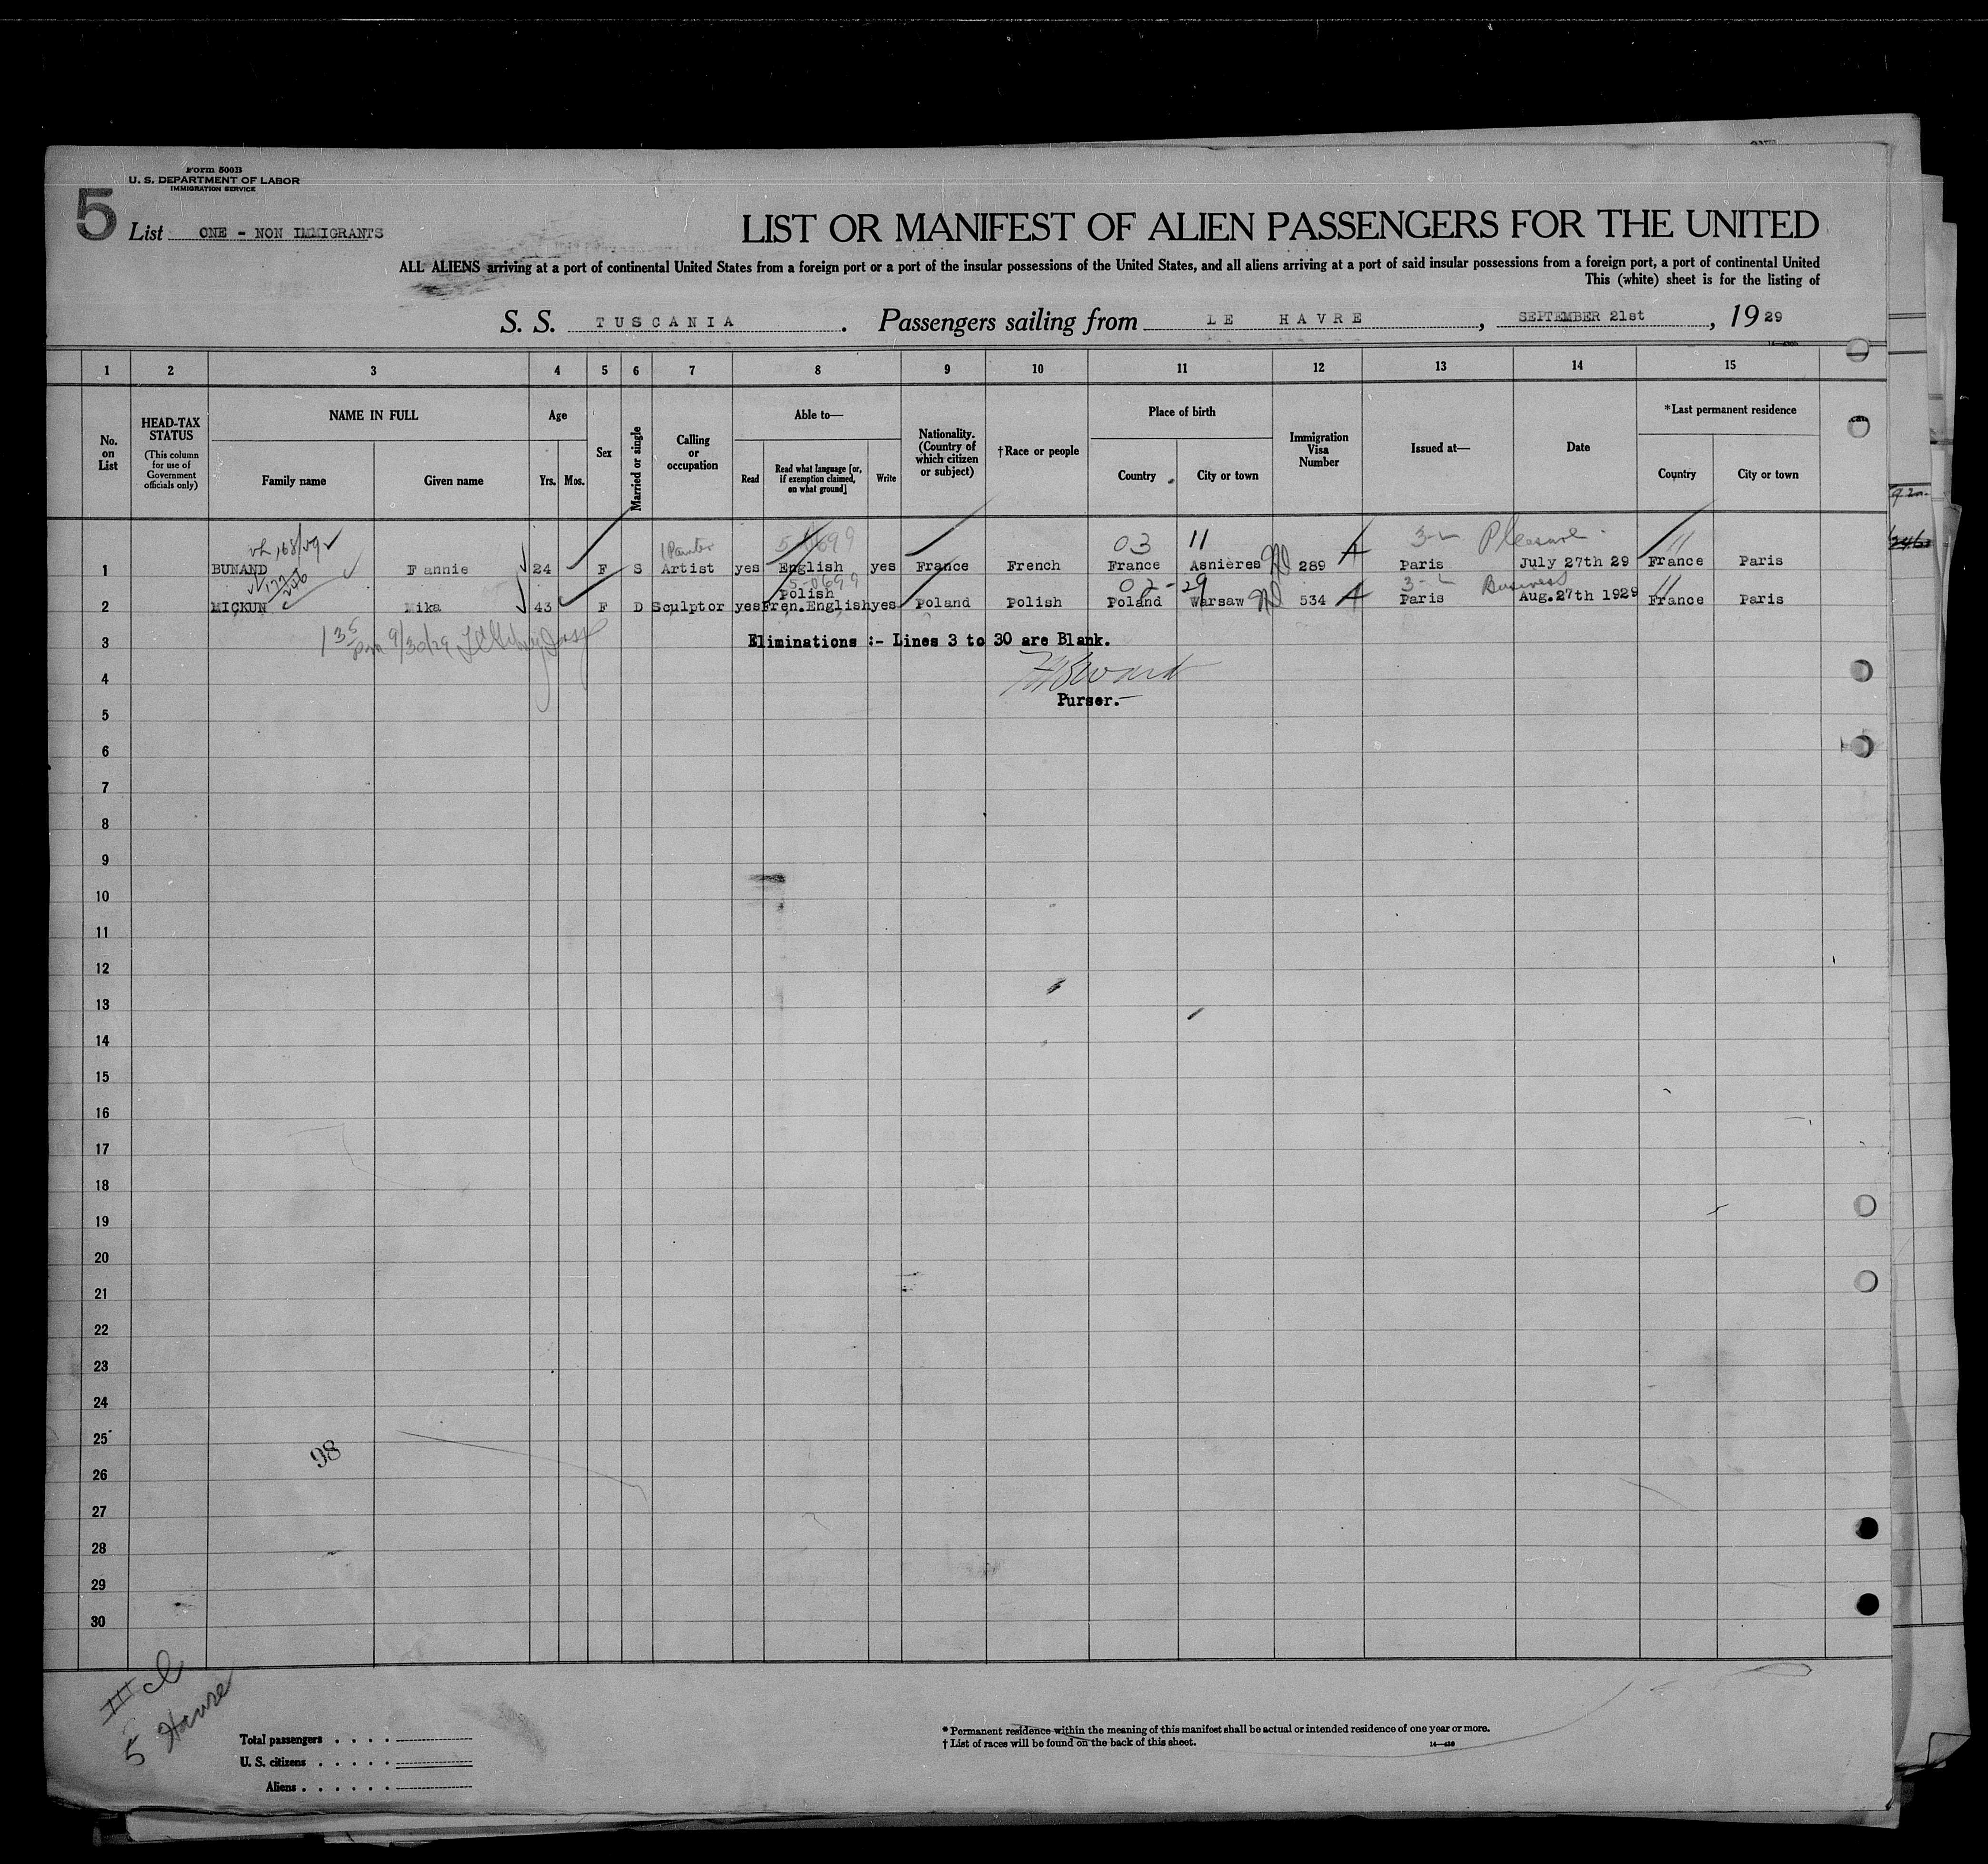 Form 500B
U. S. DEPARTMENT OF LABOR
IMMIGRATION SERVICE
5
List ONE - NON IMMIGRANTS
LIST OR MANIFEST OF ALIEN PASSENGERS FOR THE UNITED
ALL ALIENS arriving at a port of continental United States from a foreign port or a port of the insular possessions of the United States, and all aliens arriving at a port of said insular possessions from a foreign port, a port of continental United
This (white) sheet is for the listing of
S. S. TUSCANIA . Passengers sailing from LE HAVRE , SEPTEMBER 21st , 19 29
1 2 3 4 5 6 7 8 9 10 11 12 13 14 15
No. on List
HEAD-TAX STATUS
(This column for use of Government officials only)
NAME IN FULL
Family name Given name
Age
Yrs. Mos.
Sex
Married or single
Calling or occupation
Able to—
Read
Read what language [or, if exemption claimed, on what ground]
Write
Nationality. (Country of which citizen or subject)
†Race or people
Place of birth
Country City or town
Immigration Visa Number
Issued at—
Date
*Last permanent residence
Country City or town
168/59 Painter 5-0699 03 11 3-2 Pleasure 11
1 BUNAND Fannie 24 F S Artist yes English yes France French France Asnières 289 A Paris July 27th 29 France Paris
177/246 5-0699 02-29 3-2 Business 11
Polish
2 MICKUN Mika 43 F D Sculptor yes Fren.English yes Poland Polish Poland Warsaw 534 A Paris Aug.27th 1929 France Paris
1 35 pm 9/30/29
3 Eliminations :- Lines 3 to 30 are Blank.
4
Purser.-
5
6
7
8
9
10
11
12
13
14
15
16
17
18
19
20
21
22
23
24
25
98
26
27
28
29
30
III cl
5 Havre
Total passengers
U. S. citizens
Aliens
* Permanent residence within the meaning of this manifest shall be actual or intended residence of one year or more.
† List of races will be found on the back of this sheet.
14—430